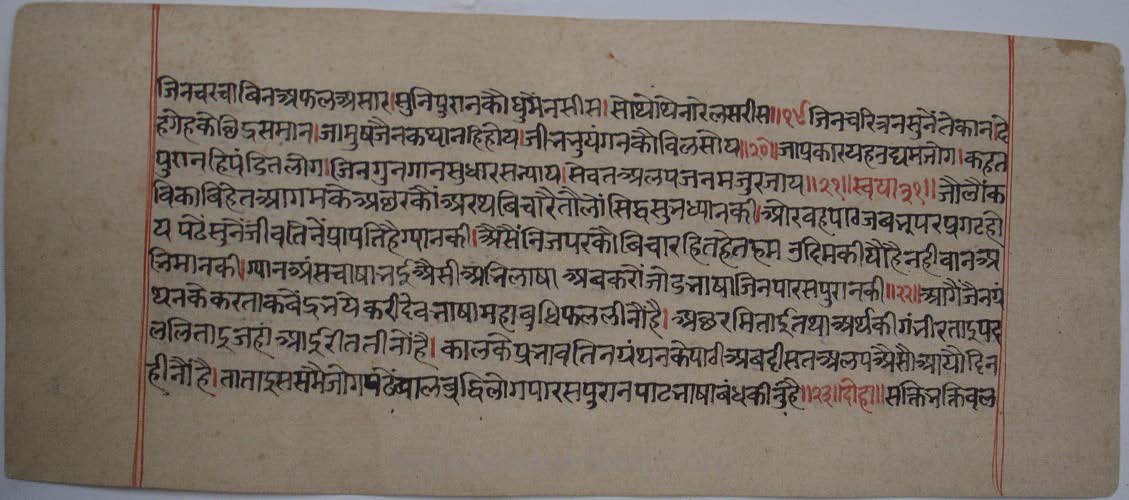 जिनचरचा बिन अफल असार। सुनि पुरानकौ घुमैन सीस। सो थोथे नारेल सरीस॥१९ जिनचरित्र न सुनें ते कान। दे
हगेहके छिद्र समान। जा मुष जैनकथा नहि होय। जीभ भुयंगनकौ बिल सोय॥२०॥ जा प्रकार यह उद्यम जोग। कहत
पुरान हि पंडित लोग। जिनगुनगान सुधारस न्याय। सेवत अलप जनमजुर जाय॥२१॥ स्वैया ३१॥ जौलौं क
वि काव्यहेत आगमके अछरकौं अरथ बिचारै तौलौं सिद्ध सुभध्यानकी। और वह पाठ जब भूपर प्रगट हो
य पढैं सुनैं जीव तिनैं प्रापति है ग्यानकी। अैसैं निज परकौ बिचार हित हेत हम उदिम कीयौ है नही बान अ
भिमानकी। ग्यान अंस चाषा भई अैसी अभिलाषा अब करों जोड भाषा जिन पारसपुरानकी॥२२॥ आगैं जैनग्रं
थनके करता कवेंद्र भये करी देवभाषा महा बुधिफल लीनौं है। अछर मिताई तथा अर्थकी गंभीरताई पद
ललिताई जहां आई रीत तीनौं है। कालके प्रभाव तिन ग्रंथनके पाठी अब दीसत अलप अैसौ आयौ दिन
हीनौं है। तातैं इस समै जोग पढैं बालबुद्धि लोग पारसपुरान पाठ भाषाबंध कीनौं है॥२३॥ दोहा॥ सक्ति भक्ति बल